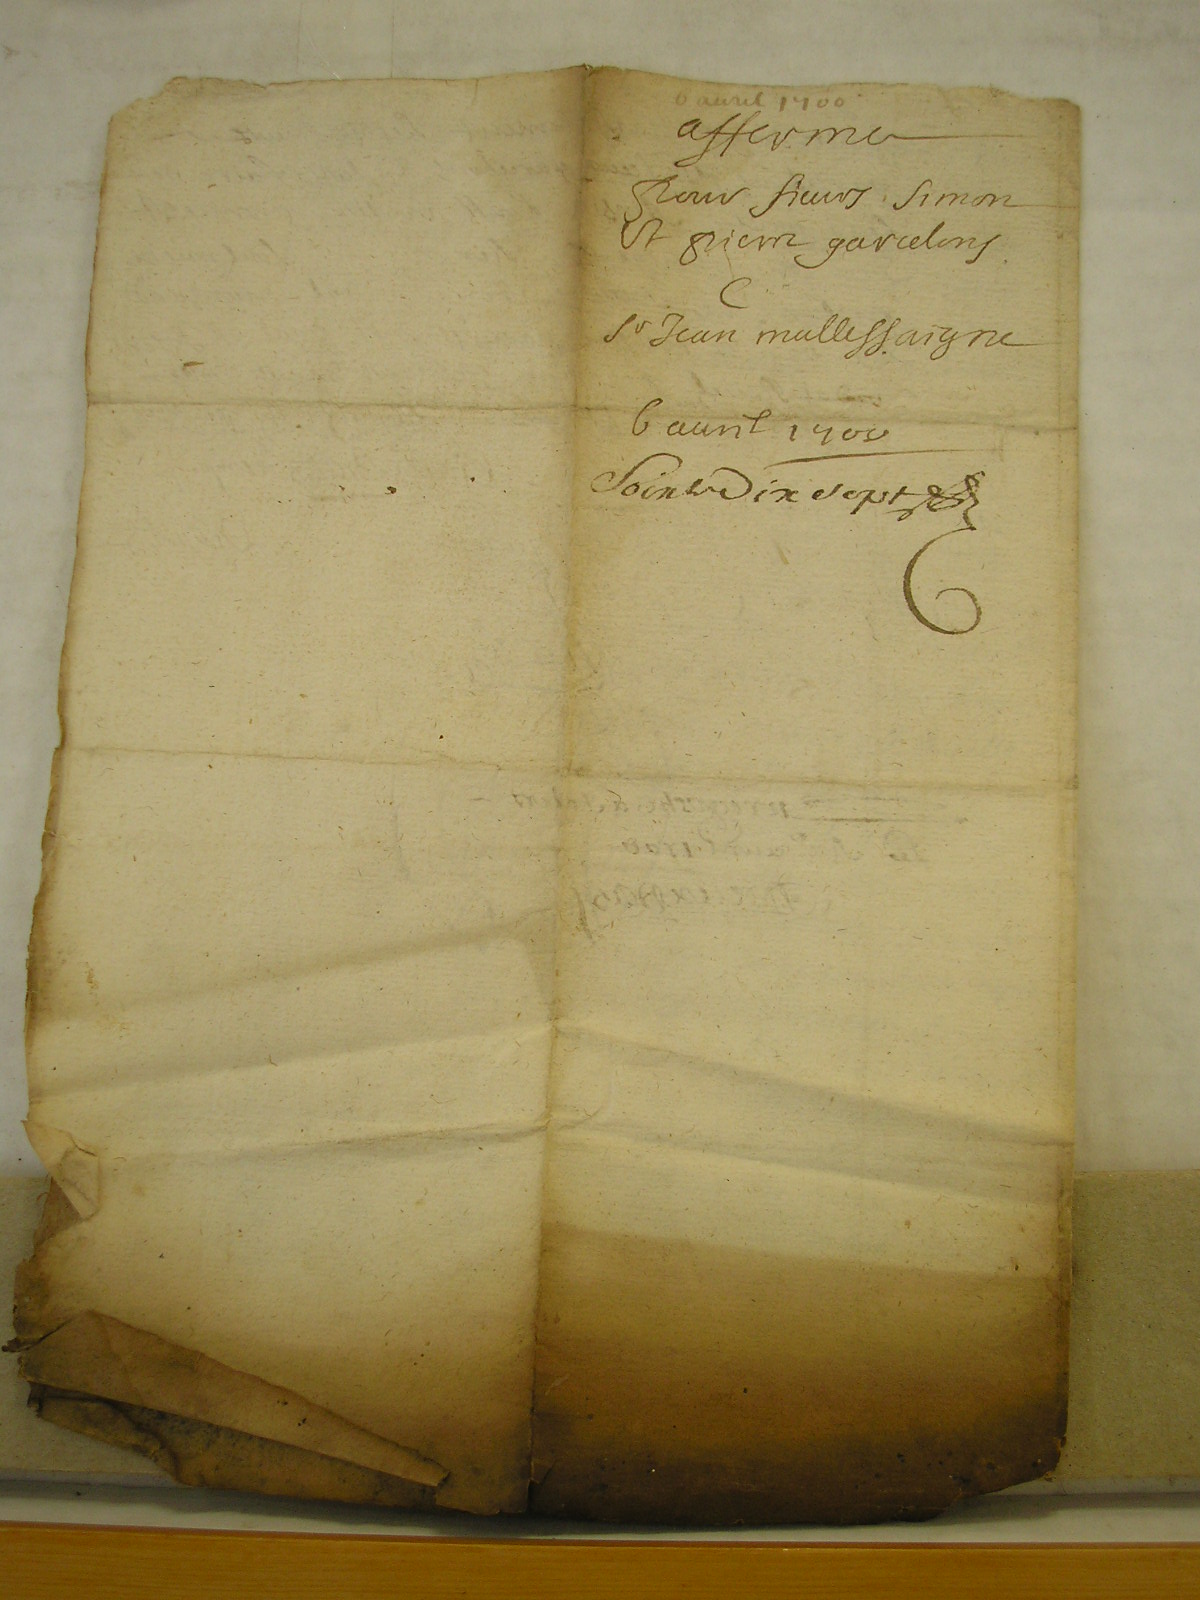 6 auril 1700
afferme
Pour sieurs Simon
Et pierre garcelons
C
Sr Jean mallessaigne
6 auril 1700
Dix sept